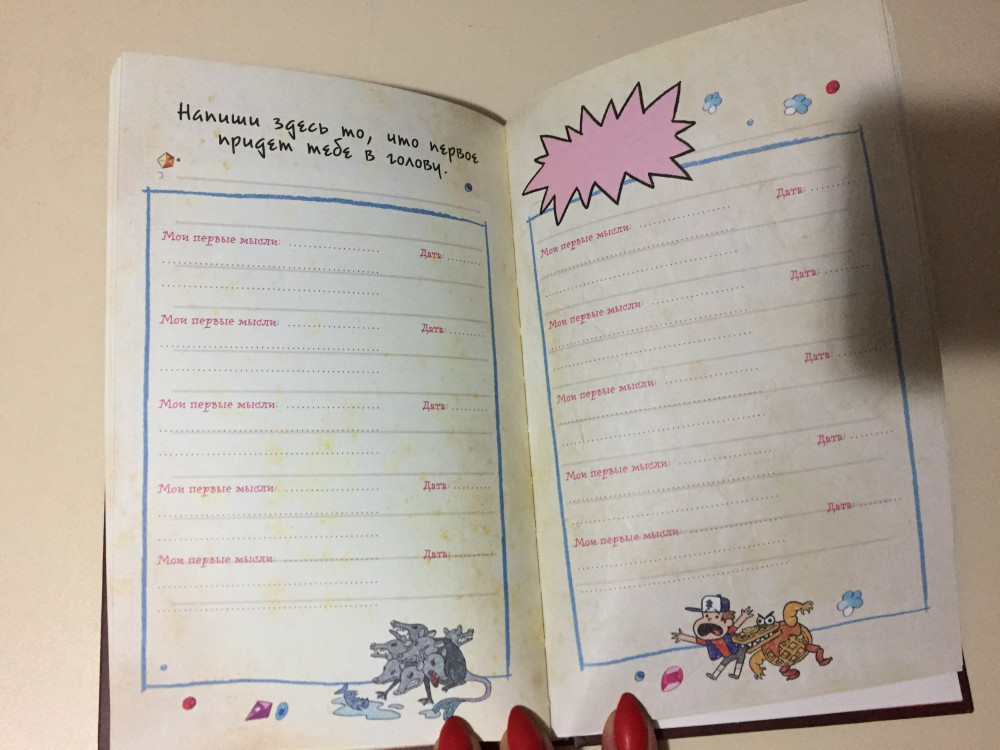 Напиши здесь то, что первое
придет тебе в голову.
Мои первые мысли: Дата:
Мои первые мысли: Дата:
Мои первые мысли: Дата:
Мои первые мысли: Дата:
Мои первые мысли: Дата:
Мои первые мысли: Дата:
Мои первые мысли: Дата:
Мои первые мысли: Дата:
Мои первые мысли: Дата:
Мои первые мысли: Дата: